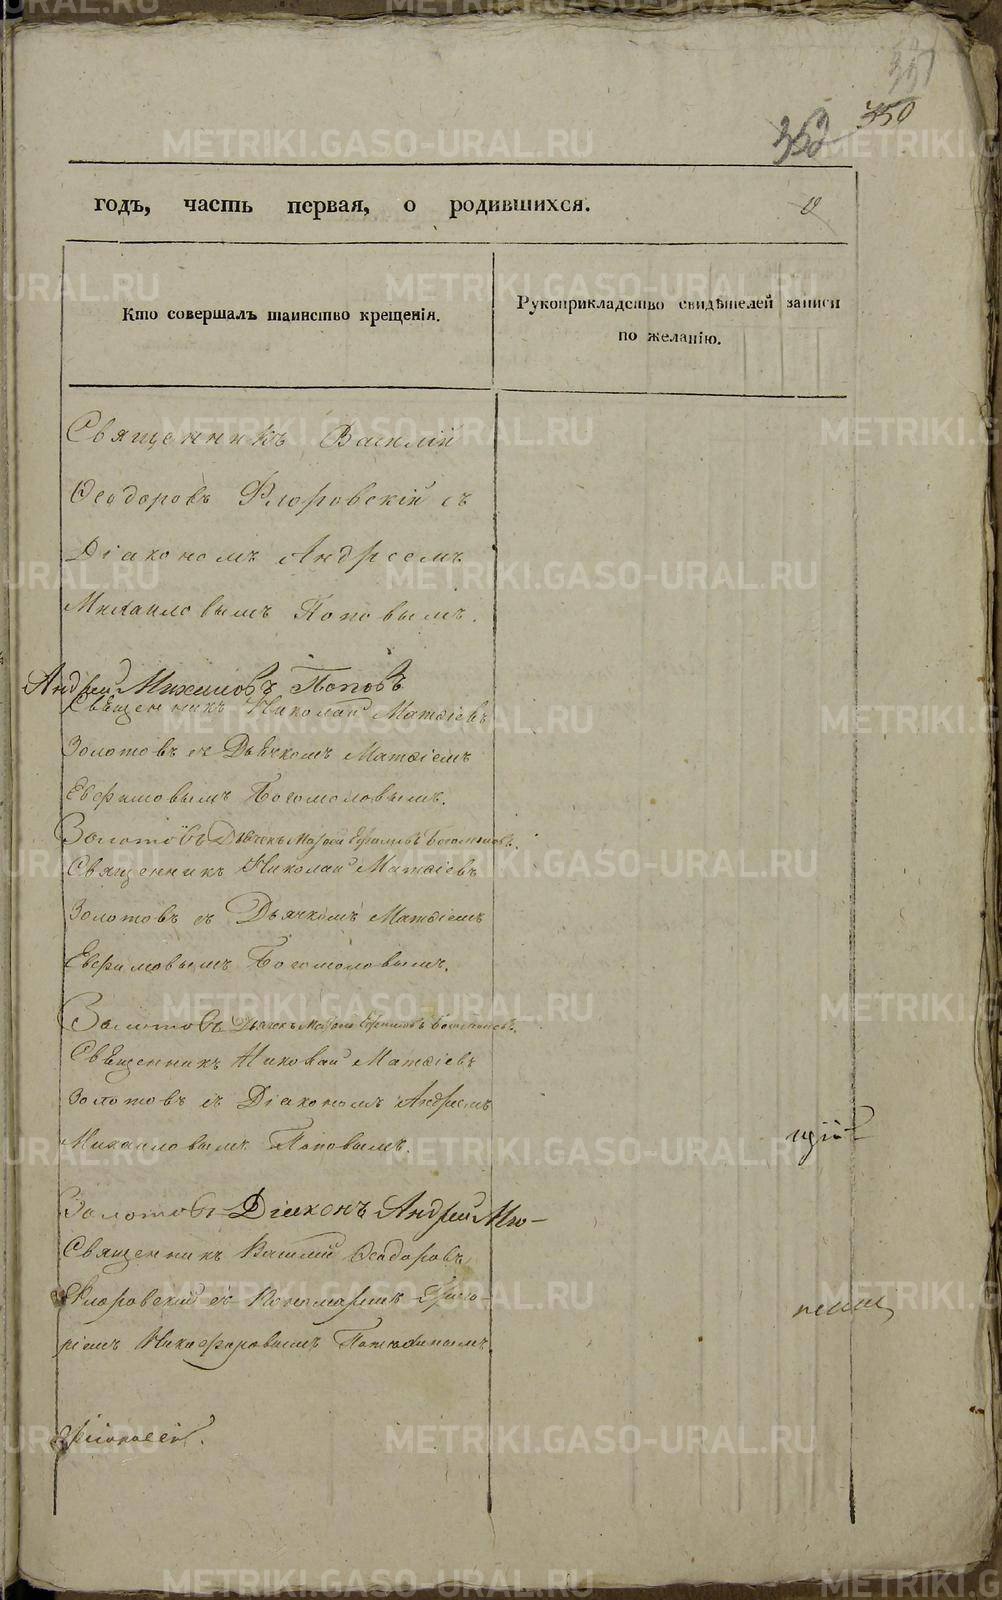 351
352 350
годъ, часть первая, о родившихся.
Кто совершалъ таинство крещенія.
Рукоприкладство свидѣтелей записи
по желанію.
Священникъ Василій
Ѳеодоровъ Флоровскій съ
Діакономъ Андреемъ
Михаиловымъ Поповымъ.
Андрей Михаиловъ Поповъ
Священникъ Николай Матѳіевъ
Золотовъ съ Дьячкомъ Матѳіемъ
Евфимовымъ Богомоловымъ.
Золотовъ Дьячекъ Матѳей Ефимовъ Богомоловъ.
Священникъ Николай Матѳіевъ
Золотовъ съ Дьячкомъ Матѳіемъ
Евфимовымъ Богомоловымъ.
Золотовъ Дьячекъ Матѳей Ефимовъ Богомоловъ.
Священникъ Николай Матѳіевъ
Золотовъ съ Діакономъ Андреемъ
Михаиловымъ Поповымъ.
Золотовъ Діаконъ Андрей Ми-
Священникъ Василій Ѳеодоровъ
Флоровскій съ Пономаремъ Григо-
ріемъ Никифоровымъ
METRIKI.GASO-URAL.RU